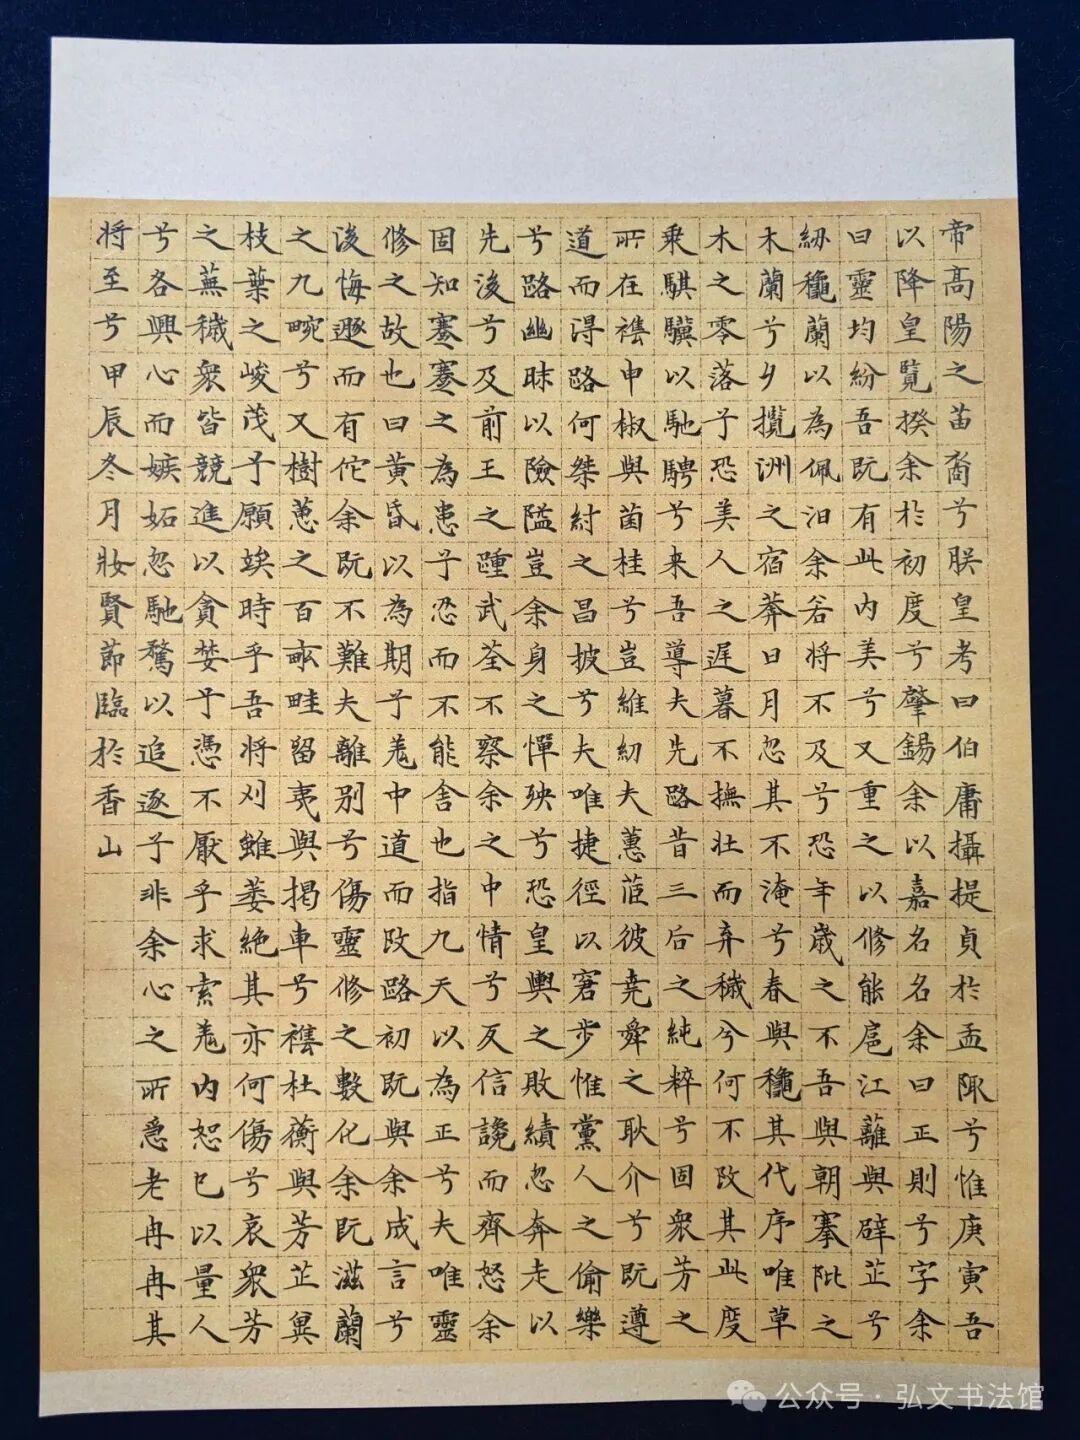 帝高陽之苗裔兮朕皇考曰伯庸攝提貞於孟陬兮惟庚寅吾
以降皇覽揆余於初度兮肇錫余以嘉名名余曰正則兮字余
曰靈均紛吾既有此內美兮又重之以修能扈江蘺與辟芷兮
紉穐蘭以為佩汩余若將不及兮恐年歲之不吾與朝搴阰之
木蘭兮夕攬洲之宿莽日月忽其不淹兮春與穐其代序唯草
木之零落予恐美人之遲暮不撫壯而弃穢兮何不改其此度
乗騏驥以馳騁兮来吾導夫先路昔三后之純粹兮固衆芳之
所在襍申椒與菌桂兮豈維紉夫蕙茝彼堯舜之耿介兮既遵
道而得路何桀紂之昌披兮夫唯捷徑以窘步惟黨人之偷樂
兮路幽昧以險隘豈余身之憚殃兮恐皇輿之敗績忽奔走以
先後兮及前王之踵武荃不察余之中情兮反信讒而齊怒余
固知謇謇之為患予忍而不能舍也指九天以為正兮夫唯靈
修之故也曰黄昏以為期予羌中道而改路初既與余成言兮
後悔遯而有佗余既不難夫離別兮傷靈修之數化余既滋蘭
之九畹兮又樹蕙之百畝畦留夷與揭車兮襍杜蘅與芳芷冀
枝葉之峻茂予願竢時乎吾將刈雖萎絕其亦何傷兮哀衆芳
之蕪穢衆皆競進以貪婪予憑不厭乎求索羌內恕己以量人
兮各興心而嫉妬忽馳騖以追逐予非余心之所急老冉冉其
将至兮甲辰冬月妝賢節臨於香山
公众号·弘文书法馆